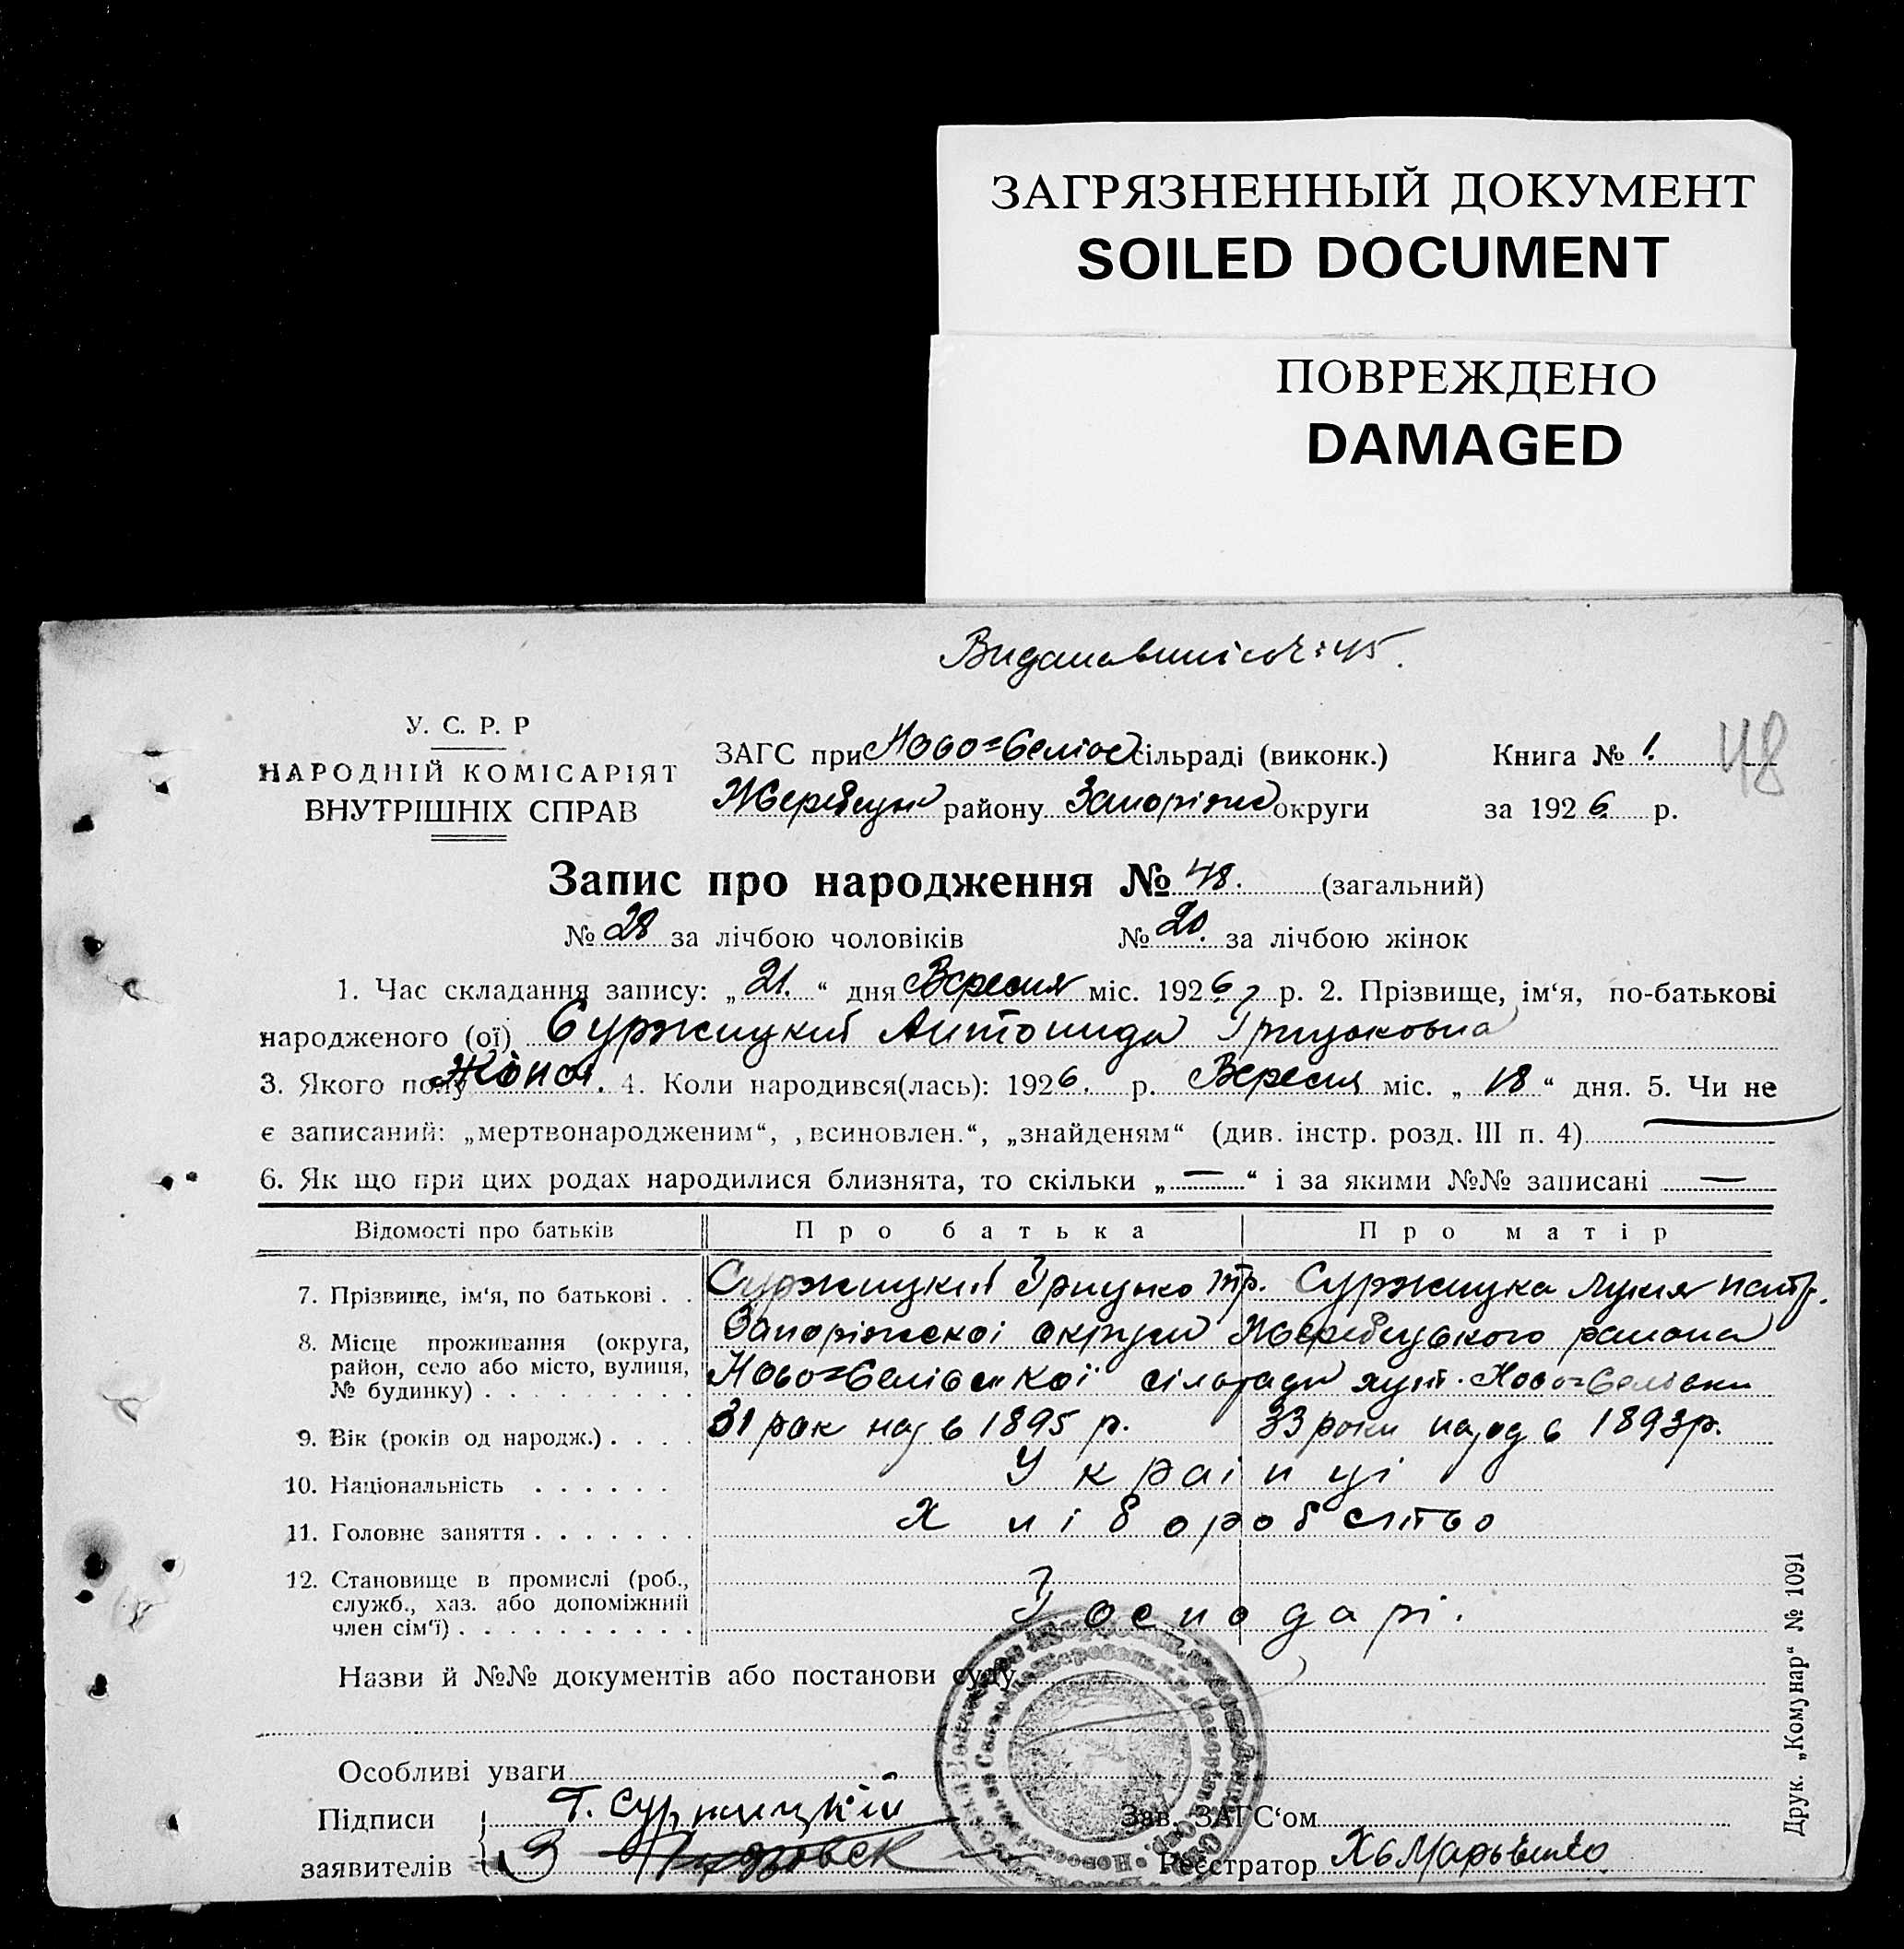 ЗАГРЯЗНЕННЫЙ ДОКУМЕНТ
SOILED DOCUMENT
ПОВРЕЖДЕНО
DAMAGED
48
У. С. Р. Р
НАРОДНІЙ КОМІСАРІЯТ
ВНУТРІШНІХ СПРАВ
ЗАГС при Ново=Селівс сільраді (виконк.)
Жеребец району Запоріж округи
Книга № 1.
за 1926. р.
Запис про народження № 48. (загальний)
№ 28 за лічбою чоловіків № 20. за лічбою жінок
1. Час складання запису: „21.“ дня Вересня міс. 1926 р. 2. Прізвище, ім‘я, по-батькові
народженого (ої) Суржицкий Антонида Грицьковна
3. Якого полу Жіноч. 4. Коли народився(лась): 1926. р. Вересня міс. „18“ дня. 5. Чи не
є записаний: „мертвонародженим“, „всиновлен.“, „знайденям“ (див. інстр. розд. III п. 4)
6. Як що при цих родах народилися близнята, то скільки „—“ і за якими №№ записані —
Відомості про батьків Про батька Про матір
7. Прізвище, ім‘я, по батькові . . Суржицкий Грицько Тр. Суржицка Лукия
8. Місце проживання (округа, район, село або місто, вулиця, № будинку) . . . . . . . . . Запоріжскоі округи Жеребецького района
Ново=Селівськоі сільради хут. Ново=Селівки
9. Вік (років од народж.) . . . . 31 рак нар в 1895 р. 33 роки народ в 1893р.
10. Національність . . . . . . Украінці
11. Головне заняття . . . . . . . Хліборобство
12. Становище в промислі (роб., служб., хаз. або допоміжний член сім‘ї) . . . . . . . . . . Господарі.
Назви й №№ документів або постанови суду
Особливі уваги
Підписи заявителів Г. Суржицкій
Зав. ЗАГС‘ом
Реєстратор
Друк. „Комунар“ № 1091